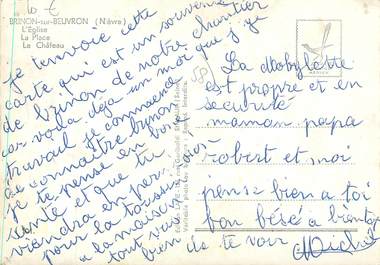 10 €
BRINON-sur-BEUVRON (Nièvre)
L'Eglise
La Place
Le Château
je t'envoie cette
carte qui est un souvenir
de brinon de notre chantier
car voila déja un moi que j'y
travail je commence
a connaitre brinon
je te pense en bonne
santé et que tu
viendra en per
pour la toussaint
a la maison
tout va
bien
58
La Mobylette
est propre et en
sécurité
maman papa
robert et moi
pense bien a toi
bon bésé a bientot
te voir Michel